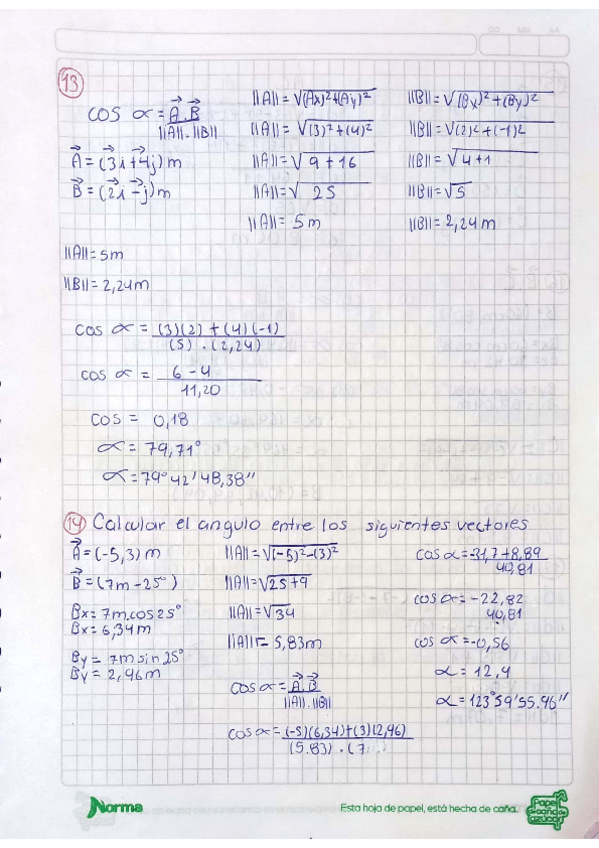 AA MM DD
13
cos α = A⃗.B⃗ / ||A||.||B||
A⃗ = (3i+4j) m
B⃗ = (2i-j) m
||A|| = √(Ax)²+(Ay)²
||A|| = √(3)²+(4)²
||A|| = √9+16
||A|| = √25
||A|| = 5m
||B|| = √(Bx)²+(By)²
||B|| = √(2)²+(-1)²
||B|| = √4+1
||B|| = √5
||B|| = 2,24 m
||A|| = 5m
||B|| = 2,24m
cos α = (3)(2)+(4)(-1) / (5).(2,24)
cos α = 6-4 / 11,20
cos = 0,18
α = 79,71°
α = 79° 42' 48,38''
14 Calcular el angulo entre los siguientes vectores
A⃗ = (-5,3) m
B⃗ = (7m-25°)
Bx = 7m.cos25°
Bx = 6,34m
By = 7m sin 25°
By = 2,96m
||A|| = √(-5)²-(3)²
||A|| = √25+9
||A|| = √34
||A|| = 5,83m
cos α = A⃗.B⃗ / ||A||.||B||
cos α = (-5)(6,34)+(3)(2,96) / (5.83).(7
cos α = -31,7+8,89 / 40,81
cos α = -22,82 / 40,81
cos α = -0,56
α = 12,4
α = 123° 59' 55.96''
Norma
Esta hoja de papel, está hecha de caña.
Papel de caña de azúcar